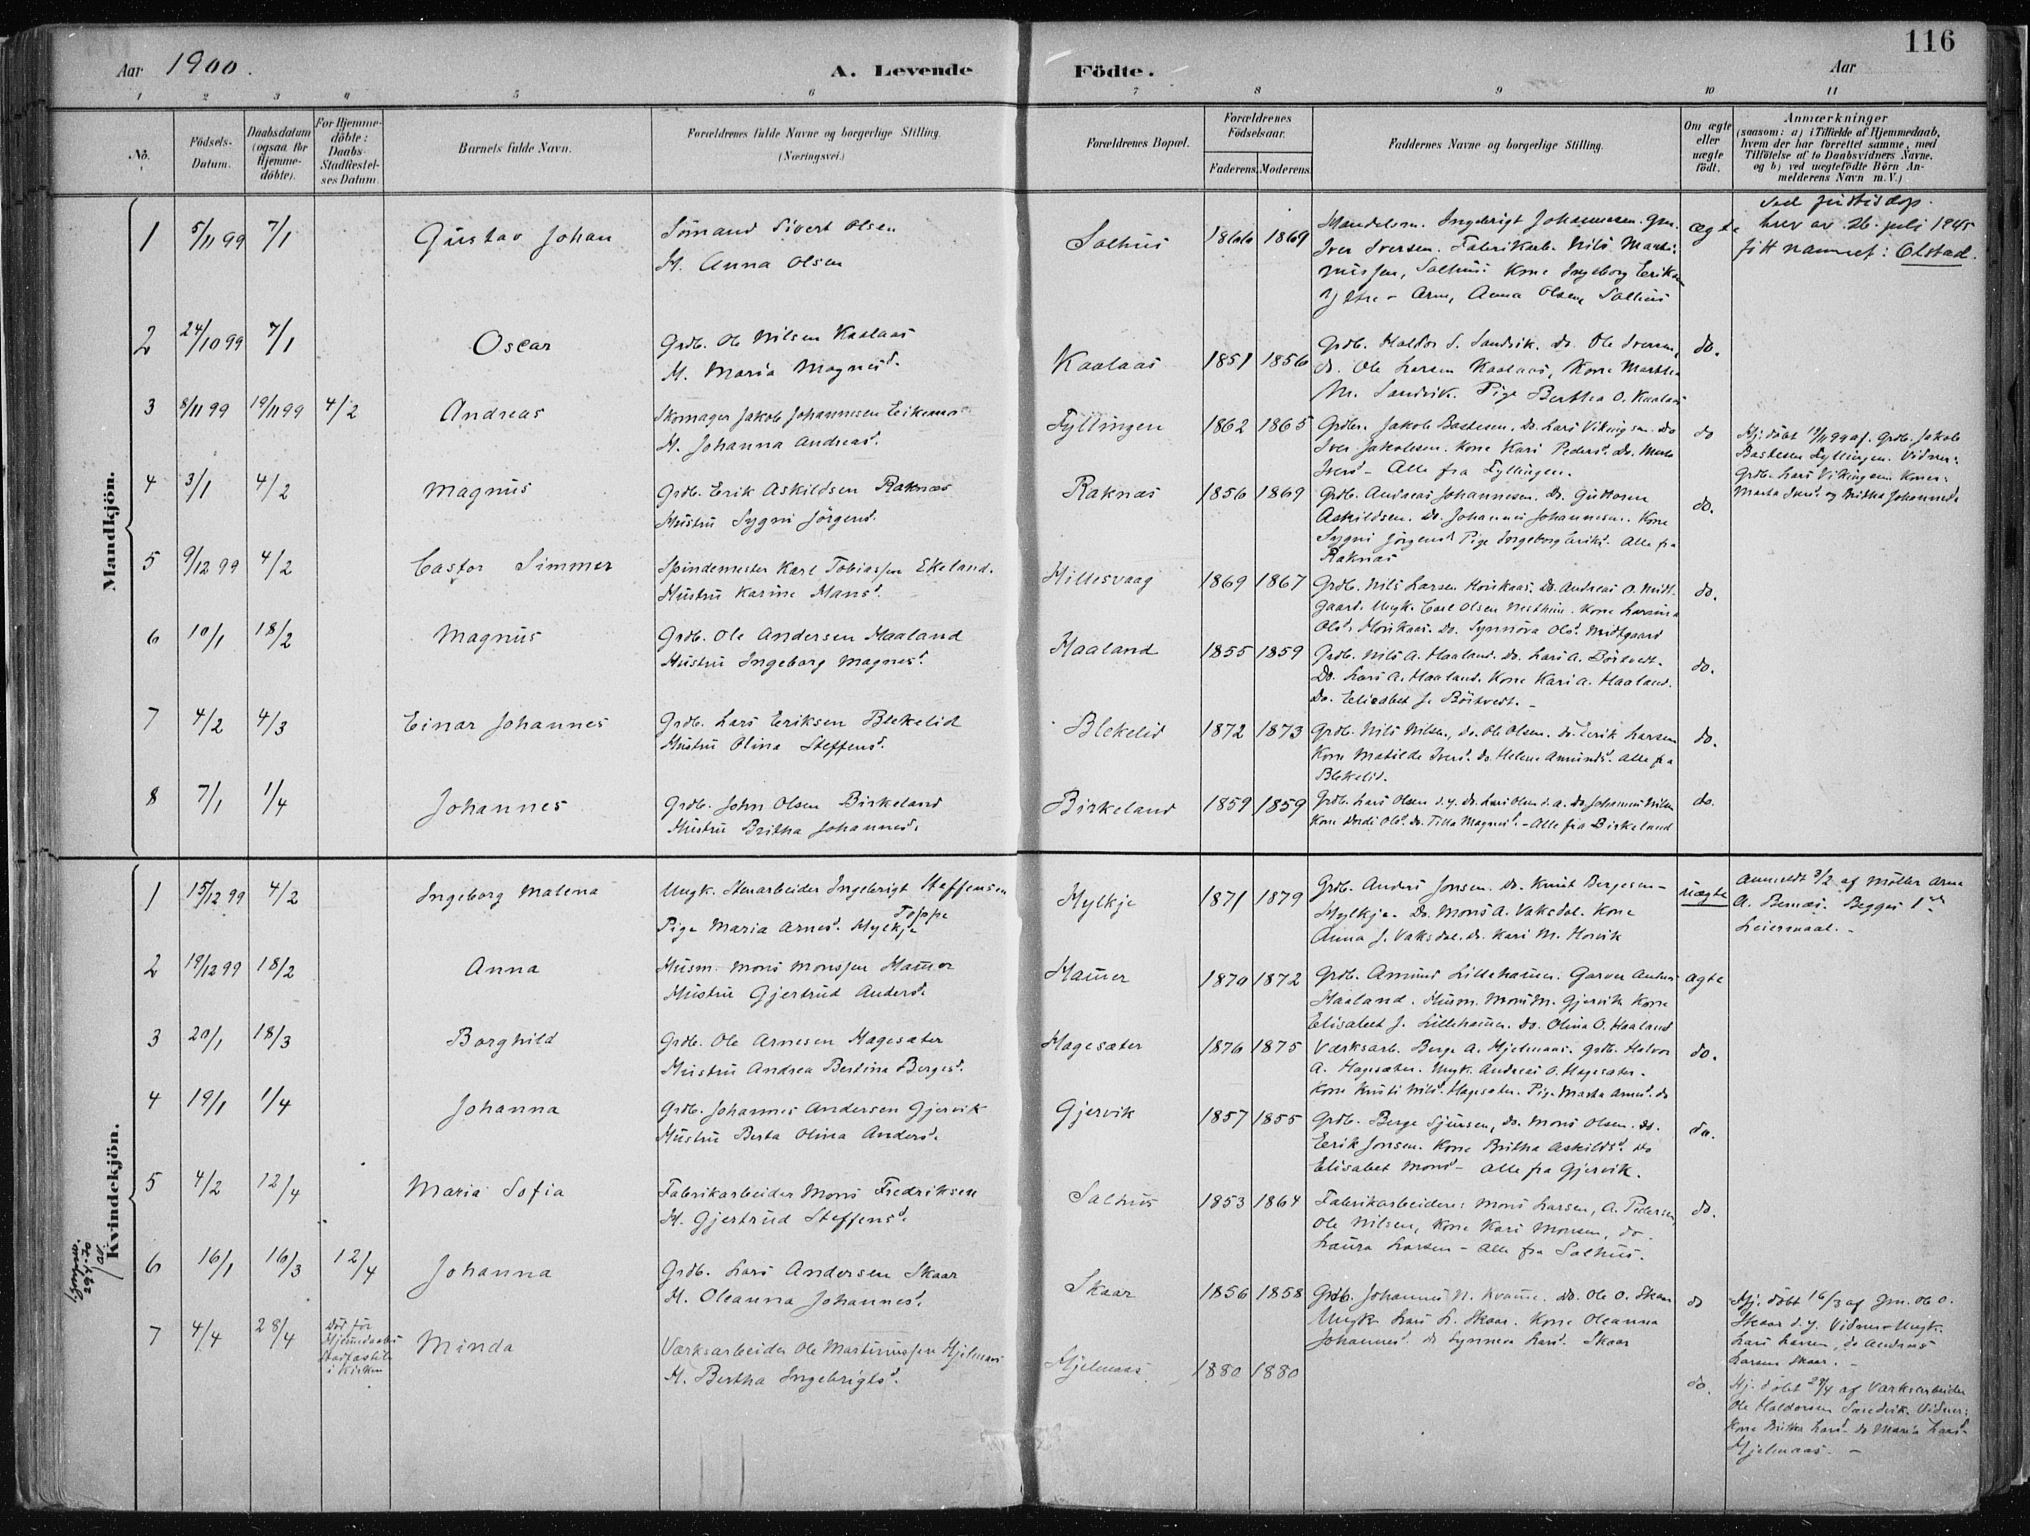 116
Aar 1900.
A. Levende Födte.
Aar
1 2 3 4 5 6 7 8 9 10 11
No.
Födsels-Datum.
Daabsdatum (ogsaa for Hjemme-döbte).
For Hjemme-döbte: Daabs-Stadfæstel-ses Datum.
Barnets fulde Navn.
Forældrenes fulde Navne og borgerlige Stilling.
(Næringsvei.)
Forældrenes Bopæl.
Forældrenes Födselsaar.
Faderens. Moderens.
Faddernes Navne og borgerlige Stilling.
Om ægte eller uægte födt.
Anmærkninger
(saasom: a) i Tilfælde af Hjemmedaab,
hvem der har forrettet samme, med
Tilföielse af to Daabsvidners Navne.
og b) ved uægtefödte Börn An-
melderens Navn m. V.)
Mandkjön.
1 5/11 99 7/1 Gustav Johan
Sömand Sivert Olsen
H. Anna Olsen
Salhus 1866 1869
Iver Iversen. Fabrikarb. Nils Marti-
nussen, Salhus. Kone Ingeborg Eriksen
Ytre-Arne, Anna Olsen, Salhus
ægte
Ved justisdep.
brev av 26. juli 1945
fått namnet: Olstad.
2 24/10 99 7/1 Oscar
Grdb. Ole Nilsen Kaalaas
H. Maria Magnesd.
Kaalaas 1851 1856
Grdb. Haldor S. Sandvik. do. Ole Iversen,
do. Ole Larsen Kaalaas, Kone Martha
M. Sandvik. Pige Bertha O. Kaalaas
do.
3 8/11 99 19/11 99 4/2 Andreas
Skomager Jakob Johannesen Eikemo
H. Johanna Andreasd.
Fyllingen 1862 1865
Grdbr. Jakob Bastesen, Do. Lars Vikingsen. do
Iver Jakobsen. Kone Kari Pedersd. Do. Marta
Iversd - Alle fra Fyllingen.
do
Hj. döbt 19/11 99 af Grdb. Jakob
Bastesen Fyllingen. Vidner:
Grdb. Lars Vikingsen Koner:
Marta Iversd. og Britha Johannesd.
4 3/1 4/2 Magnus
Grdb. Erik Askildsen Raknæs
Hustru Sygni Jörgensd.
Raknæs 1856 1869
Grdb. Andreas Johannesen. Do. Guttorm
Askildsen. Do. Johannes Johannesen. Kone
Sygni Jörgensd. Pige Ingeborg Eriksd. Alle fra
Raknæs
do.
5 9/12 99 4/2 Castor Simmer
Spindemester Karl Tobiassen Ekeland.
Hustru Karine Hansd.
Hillesvaag 1869 1867
Grdb. Nils Larsen Horikaas. Do. Andreas O. Midt-
gaard. Ungk. Carl Olsen Nesthus. Kone Larsina
Olsd. Horikaas. Do. Synnöva Olsd. Midtgaard
do.
6 10/1 18/2 Magnus
Grdb. Ole Andersen Haaland
Hustru Ingeborg Magnesd.
Haaland 1855 1859
Grdb. Nils A. Haaland. do. Lars A. Börtvedt.
Do. Lars A. Haaland. Kone Kari A. Haaland.
Do. Elisabet J. Börtvedt. -
do.
7 4/2 4/3 Einar Johannes
Grdb. Lars Eriksen Blekelid
Hustru Olina Steffensd.
Blekelid 1872 1873
Grdb. Nils Nilsen, do. Ole Olsen. do. Erik Larsen
Kone Matilde Iversd. do. Helene Amundsd. Alle fra
Blekelid.
do.
8 7/1 1/4 Johannes
Grdb. John Olsen Birkeland
Hustru Britha Johannesd.
Birkeland 1859 1859
Grdb. Lars Olsen d.y. do. Lars Olsen d.æ. do. Johannes Nilsen
Kone Dordi Olsd. Do. Tilla Magnesd. - Alle fra Birkeland
do.
Kvindekjön.
1 15/12 99 4/2 Ingeborg Malena
Ungk. Stenarbeider Ingebrigt Steffensen Toppe
Pige Maria Arnesd. Mylkje
Mylkje 1871 1879
Grdb. Anders Jonsen. Do. Knut Bergesen -
Mylkje. Do. Mons A. Vaksdal. Kone
Anna J. Vaksdal. do. Kari M. Horvik
uægte
Anmeldt 3/2 af Möller Arne
A. Bernæs. Begges 1ste
Leiermaal. -
2 19/12 99 18/2 Anna
Husm. Mons Monssen Hauser
Hustru Gjertrud Andersd.
1870 1872
Grdb. Amund Lillehauser. Garver Anders
Haaland. Husm. Mons M. Gjervik Kone
Elisabet J. Lillehauser. Do. Olina O. Haaland
ægte
3 20/1 18/3 Borghild
Grdb. Ole Arnesen Hagesæter
Hustru Andrea Bertina Bergesd.
Hagesæter 1876 1875
Værksarb. Berge A. Hjelmaas. Grdb. Halvor
A. Hagesæter. Ungk. Andreas O. Hagesæter.
Kone Kristi Nilsd. Hagesæter. Pige Marta Arnesd. do
do.
4 19/1 1/4 Johanna
Grdb. Johannes Andersen Gjervik
Hustru Berta Olina Andersd.
Gjervik 1857 1855
Grdb. Berge Sjursen, do. Mons Olsen. do.
Erik Jonsen. Kone Britha Askildsd. Do
Elisabet Monsd - Alle fra Gjervik.
do.
5 4/2 12/4 Maria Sofia
Fabrikarbeider Mons Fredriksen
H. Gjertrud Steffensd.
Salhus 1853 1864
Fabrikarbeidere: Mons Larsen, A. Pedersen,
Ole Nilsen, Kone Kari Monsen, do.
Laura Larsen - Alle fra Salhus.
do.
6 16/1 16/3 12/4 Johanna
Grdb. Lars Andersen Skaar
H. Oleanna Johannesd.
Skaar 1856 1858
Grdb. Johannes N. Kvamme. Do. Ole O. Skaar
Ungk. Lars L. Skaar. Kone Oleanna
Johannesd. do Synneva Larsd. Skaar
do
Hj. döbt 16/3 af Gm. Ole O.
Skaar d.y. Vidner Ungk.
Lars Larsen, do Andreas
Larsen Skaar. -
7 4/4 28/4
Död för
Hjemdaaben
Stadfæstet
i Kirken
Minda
Værksarbeider Ole Martinussen Hjelmaas
H. Bertha Ingebrigtsd.
Hjelmaas 1880 1880
do.
Hj. döbt 28/4 af Værksarbeider
Ole Haldorsen Sandvik. Vidner:
Kone Britha Larsd. do Maria Larsd
Hjelmaas. -